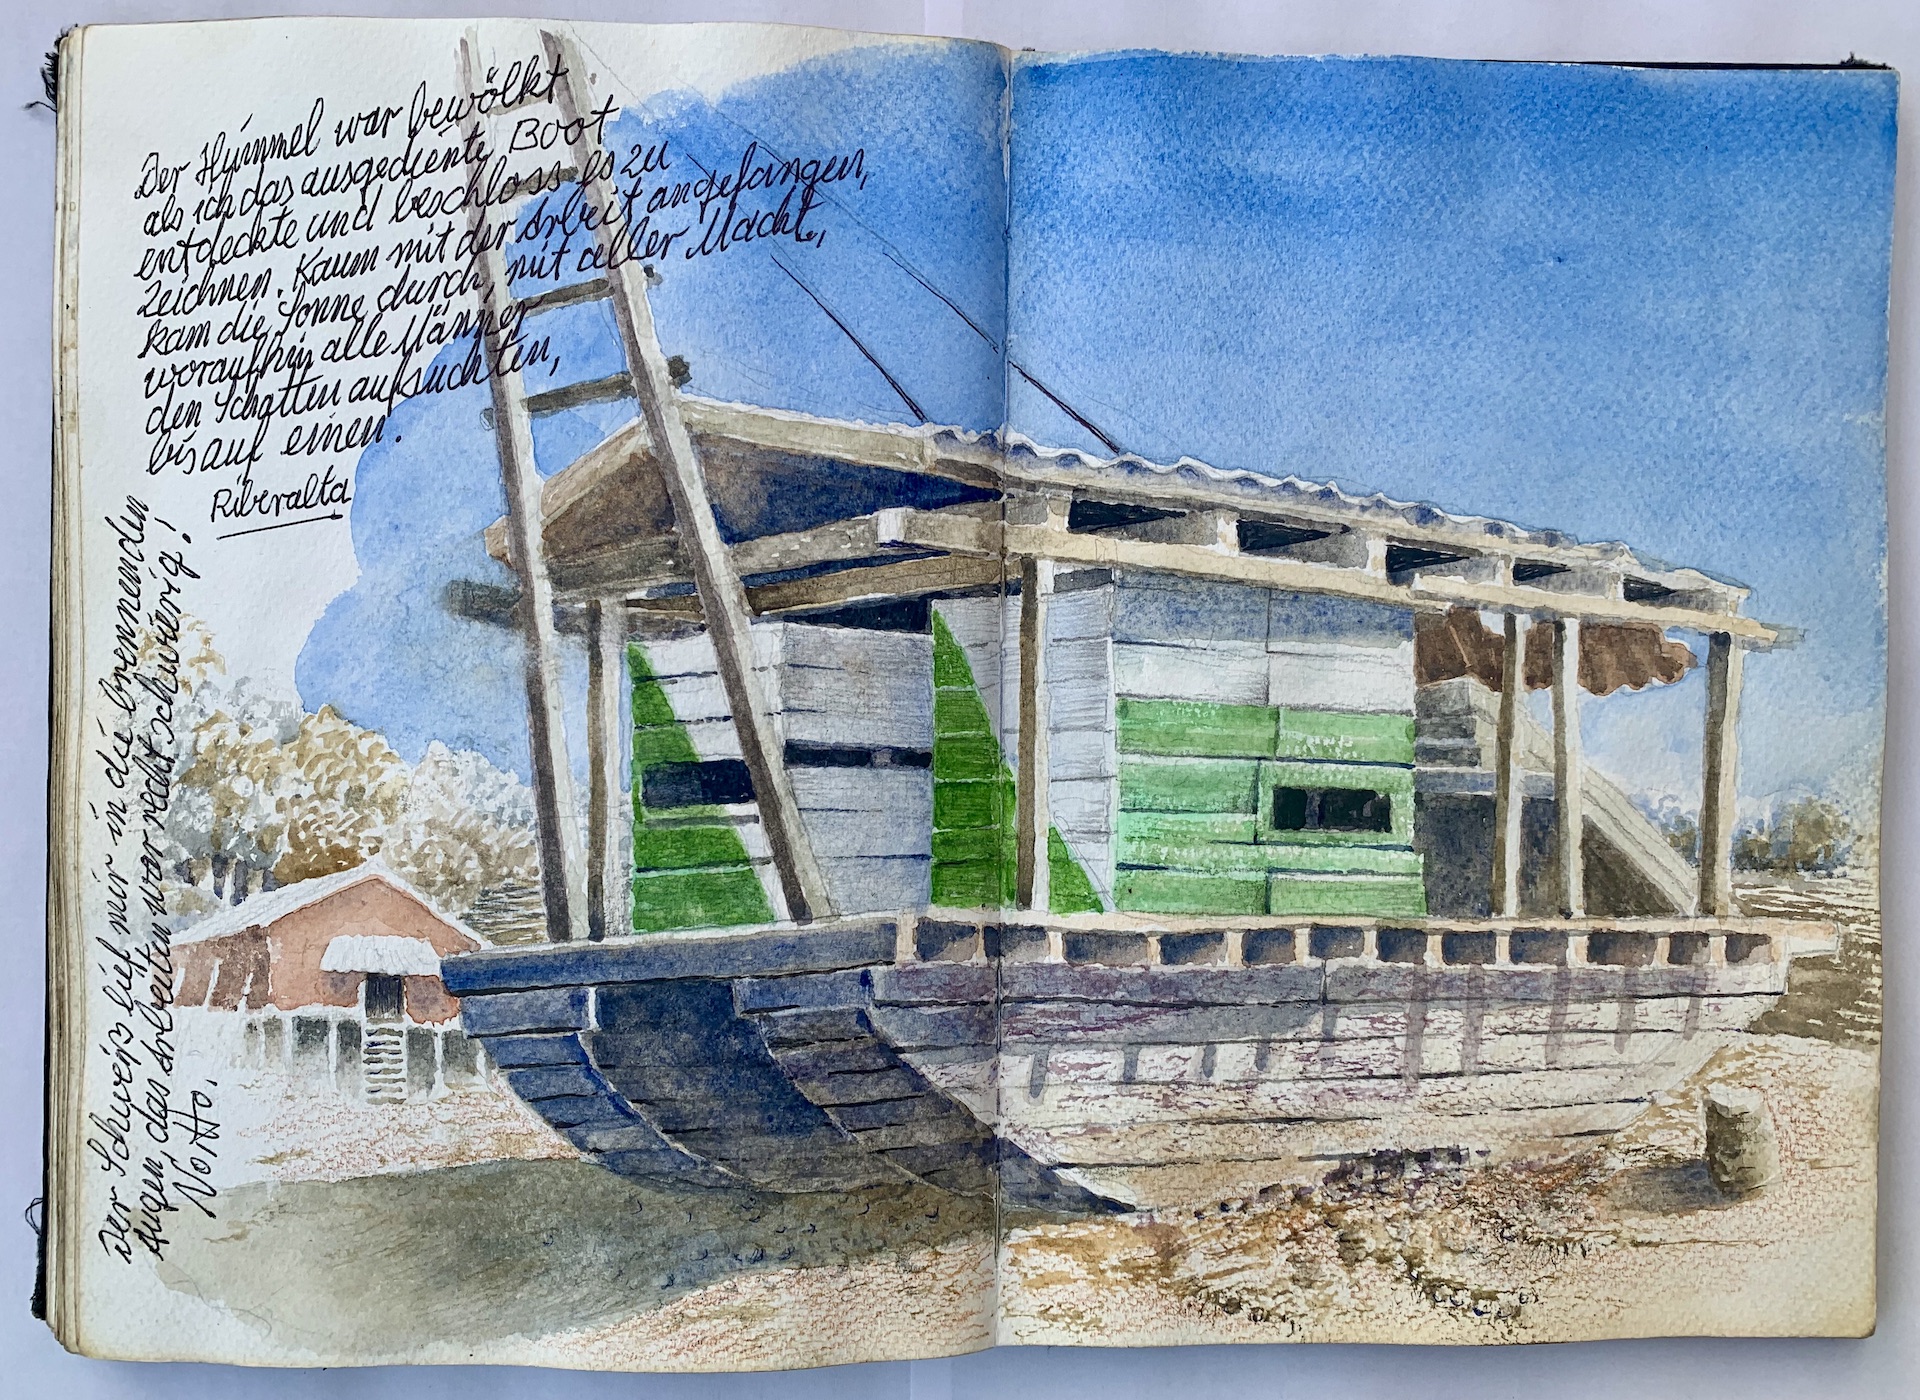 Der Himmel war bewölkt
als ich das ausgediente Boot
entdeckte und beschloss es zu
zeichnen. Kaum mit der Arbeit angefangen,
kam die Sonne durch, mit aller Macht,
woraufhin alle Männer
den Schatten aufsuchten,
bis auf einen.
Riberalta
Der Schweiß lief mir in die brennenden
Augen, das Arbeiten war recht schwierig!
Notto.